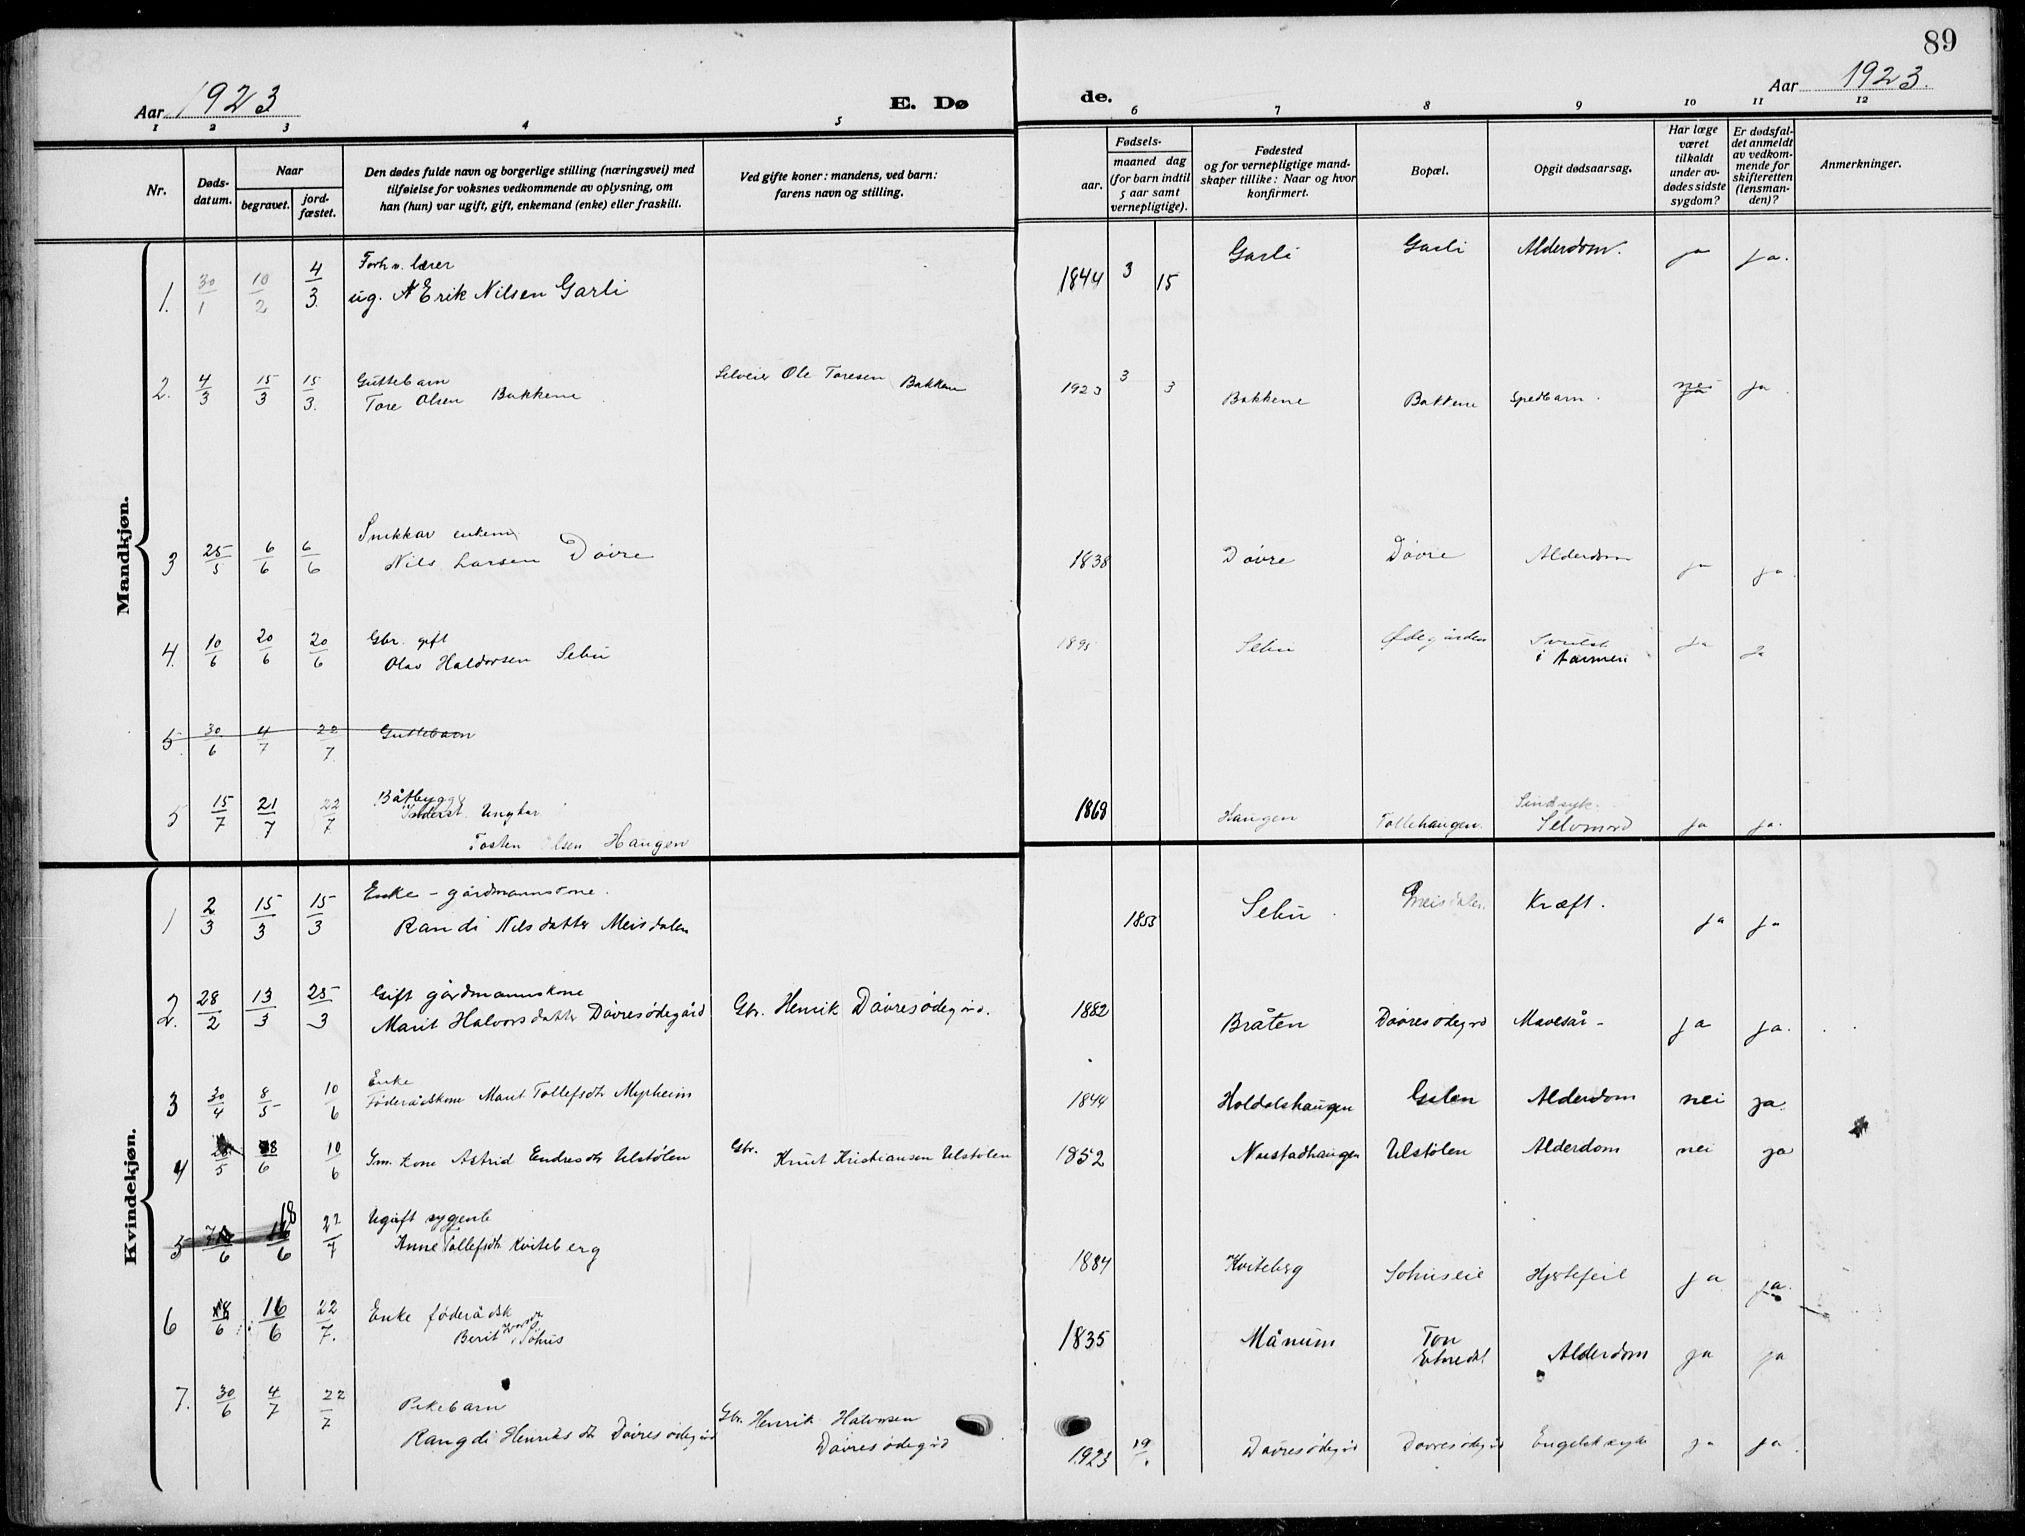 89
Aar 1923
E. Dø
de.
Aar 1923.
1 2 3 4 5 6 7 8 9 10 11 12
Nr.
Døds-
datum.
Naar
begravet.
jord-
fæstet.
Den dødes fulde navn og borgerlige stilling (næringsvei) med
tilføielse for voksnes vedkommende av oplysning, om
han (hun) var ugift, gift, enkemand (enke) eller fraskilt.
Ved gifte koner: mandens, ved barn:
farens navn og stilling.
Fødsels-
aar.
maaned dag
(for barn indtil
5 aar samt
vernepligtige).
Fødested
og for vernepligtige mand-
skaper tillike: Naar og hvor
konfirmert.
Bopæl.
Opgit dødsaarsag.
Har læge
været
tilkaldt
under av-
dødes sidste
sygdom?
Er dødsfal-
det anmeldt
av vedkom-
mende for
skifteretten
(lensman-
den)?
Anmerkninger.
Mandkjøn.
Forhv. lærer
1. 30/1 10/2 4/3. ug. Erik Nilsen Garli 1844 3 15 Garli Garli Alderdom. ja ja.
Guttebarn
2. 4/3 15/3 15/3. Tore Olsen Bakkene Selveier Ole Toresen Bakken 1923 3 3 Bakkene Bakkene Spedbarn. nei ja
Snikkar enkem
3 25/5 6/6 6/6 Nils Larsen Døvre 1838 Døvre Døvre Alderdom ja ja.
Gbr. gift
4. 10/6 20/6 20/6 Olav Haldorsen Sebu 1895 Sebu Ødegården
i Tarmen ja ja
5. 30/6 4/7 22/7. Guttebarn
Båtbygg
5 15/7 21/7 22/7 Ungkar
Tosten Olsen Haugen 1868 Haugen Tollehaugen. Sindsyk.
Selvmord ja ja.
Kvindekjøn.
Enke - gårdmannskone.
1 2/3 15/3 15/3 Randi Nilsdatter Meisdalen 1853 Sebu. Meisdalen Kræft. ja ja
Gift gårdmannskone
2. 28/2 13/3 25/3 Marit Halvorsdatter Døvresødegård Gbr. Henrik Døvresødegård. 1882 Bråten Døvresødegrd Mavesår - ja ja.
Enke
3 30/4 8/5 10/6 Føderådskone Marit Tollefsdtr Myrheim 1844 Holdalshaugen Galen Alderdom nei ja.
4 28/5 8/6 10/6 Gm. kone Astrid Endresdtr Ulstølen Gbr. Knut Kristiansen Ulstølen 1852 Naustadhaugen Ulstølen Alderdom nei ja
Ugift sygente
5 7/6 18/6 22/7 Anne Tollefsdtr Kviteberg 1884 Kviteberg Sohuseie Hjertefeil ja ja.
6 8/6 16/6 22/7. Enke føderådsk
Berit Sohus 1835 Månum Ton
Etnedal Alderdom ja ja
7. 30/6 4/7 22/7 Pikebarn
Rangdi Henriksdtr Døvresødegård Gbr. Henrik Halvorsen
Døvresødegrd 1923 Døvresødegrd Døvresødegrd Engelsk syke ja ja.